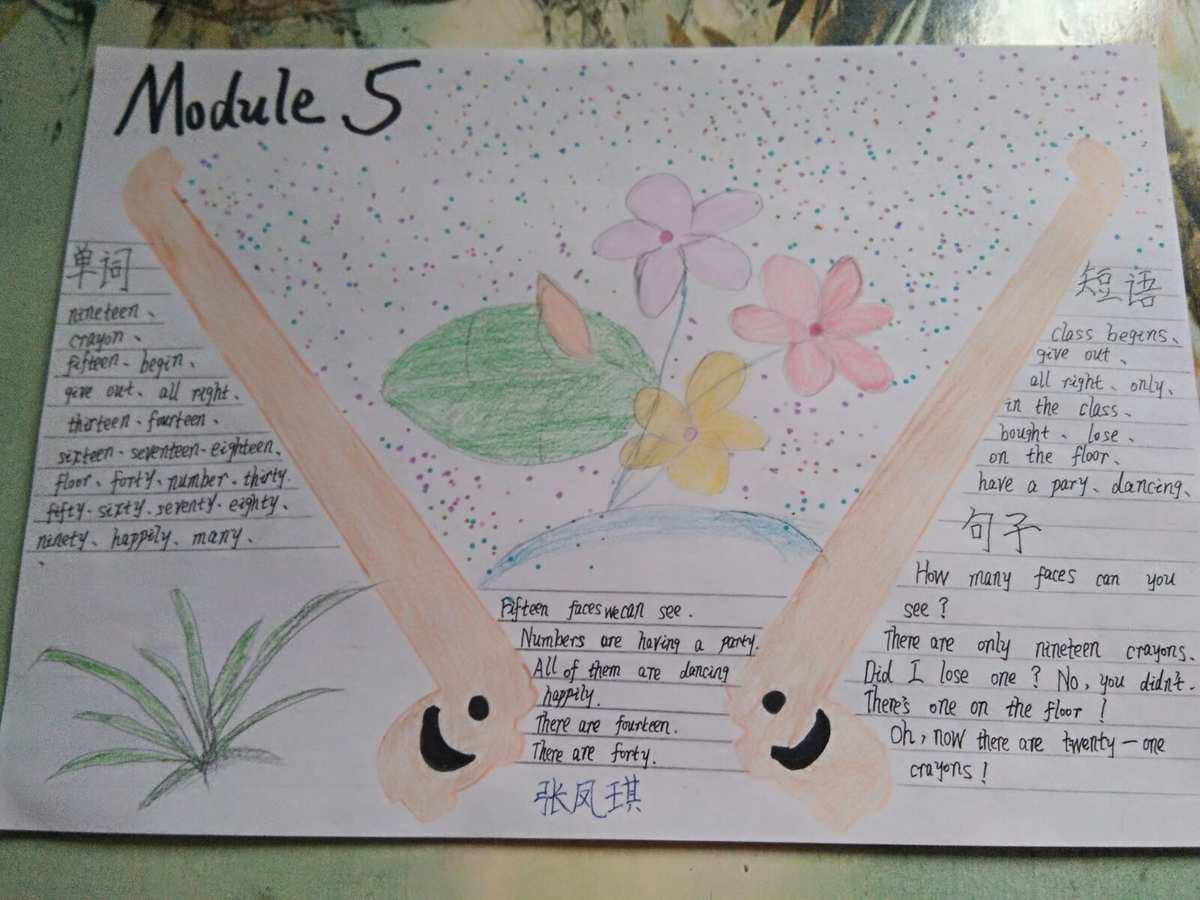 Module 5
单词
nineteen、
crayon、
fifteen、begin、
give out、all right、
thirteen、fourteen、
sixteen、seventeen、eighteen、
floor、forty、number、thirty.
fifty、sixty、seventy、eighty、
ninety、happily、many、
、
Fifteen faces we can see.
Numbers are having a party.
All of them are dancing
happily.
There are fourteen.
There are forty.
张凤琪
短语
class begins、
give out、
all right、only、
in the class、
bought、lose、
on the floor、
have a pary、dancing、
句子
How many faces can you
see?
There are only nineteen crayons.
Did I lose one? No, you didn't.
There's one on the floor!
Oh, now there are twenty-one
crayons!